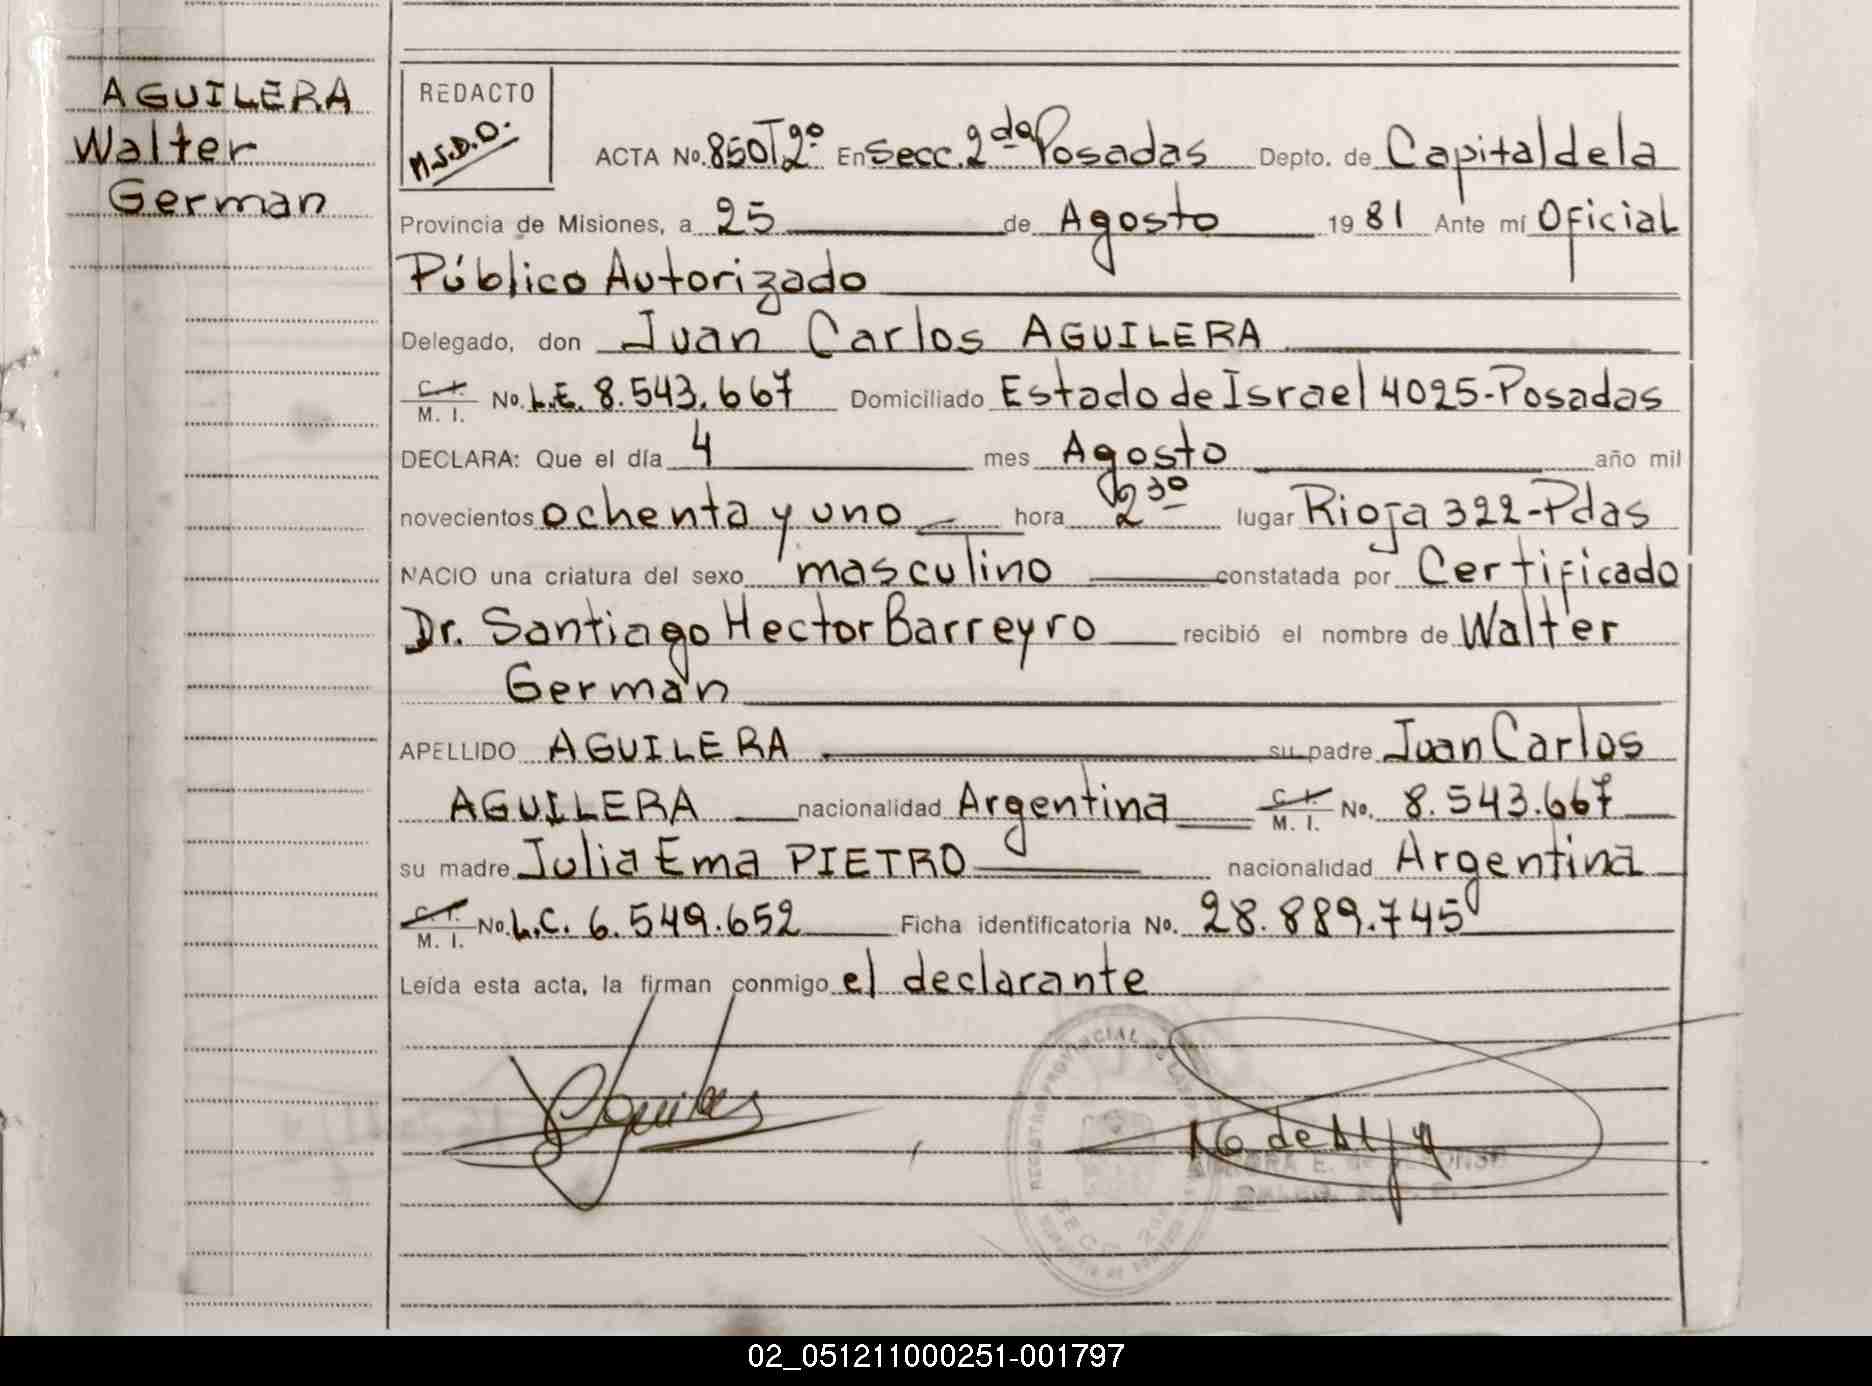 AGUILERA
Walter
German
REDACTO
M.S.D.O.
ACTA No. 850 T2º En Secc. 2da Posadas Depto. de Capital de la
Provincia de Misiones, a 25 de Agosto 1981 Ante mí Oficial
Público Autorizado
Delegado, don Juan Carlos AGUILERA
C. I. M. I. No. L.E. 8.543.667 Domiciliado Estado de Israel 4025-Posadas
DECLARA: Que el día 4 mes Agosto año mil
novecientos ochenta y uno hora 2 30 lugar Rioja 322-Pdas
NACIO una criatura del sexo masculino constatada por Certificado
Dr. Santiago Hector Barreyro recibió el nombre de Walter
Germán
APELLIDO AGUILERA su padre Juan Carlos
AGUILERA nacionalidad Argentina C. I. M. I. No. 8.543.667
su madre Julia Ema PIETRO nacionalidad Argentina
C. I. M. I. No. L.C. 6.549.652 Ficha identificatoria No. 28.889.745
Leída esta acta, la firman conmigo el declarante
REGISTRO PROVINCIAL DE LAS
SECC. 2da
02_051211000251-001797